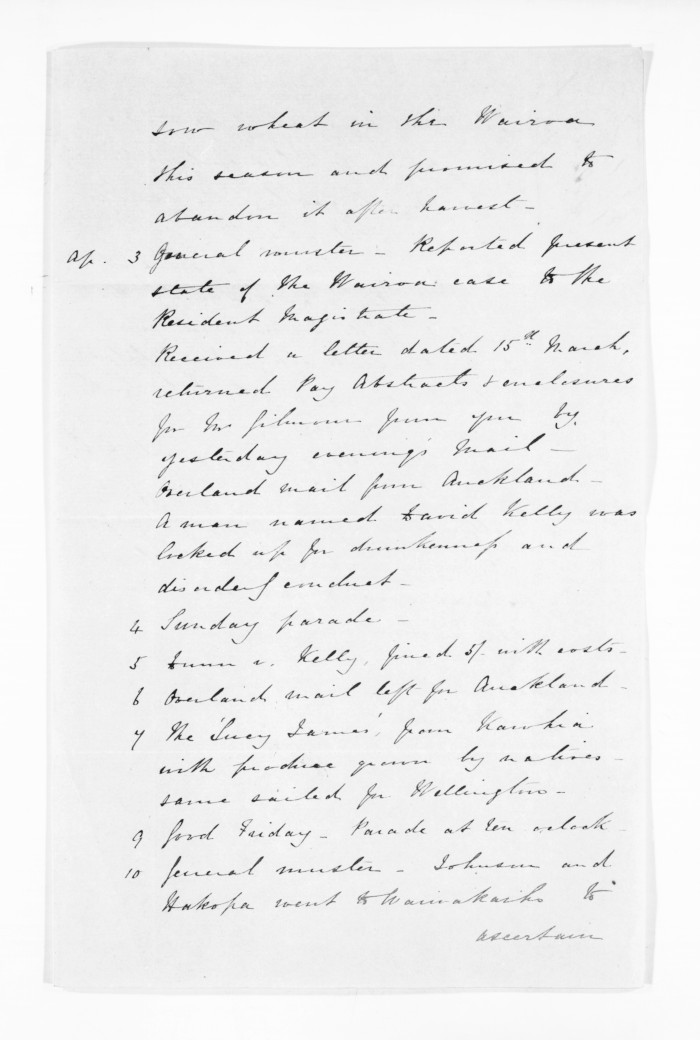 sow wheat in the Wairoa
this season and promised to
abandon it after harvest -
Ap. 3 General muster - Reported present
state of the Wairoa case to the
Resident Magistrate -
Received a letter dated 15th March,
returned Pay Abstracts & enclosures
for Mr Gilmour from you by
yesterday evening's Mail -
Overland mail from Auckland -
A man named David Kelly was
locked up for drunkenness and
disorderly conduct -
4 Sunday parade -
5 Dunn v. Kelly, fined 5/- with costs -
6 Overland mail left for Auckland -
7 The 'Lucy James', from Kawhia
with produce grown by natives -
same sailed for Wellington -
9 Good Friday - Parade at ten o'clock -
10 General muster - Johnson and
Hakopa went to Waiwakaiho to
ascertain